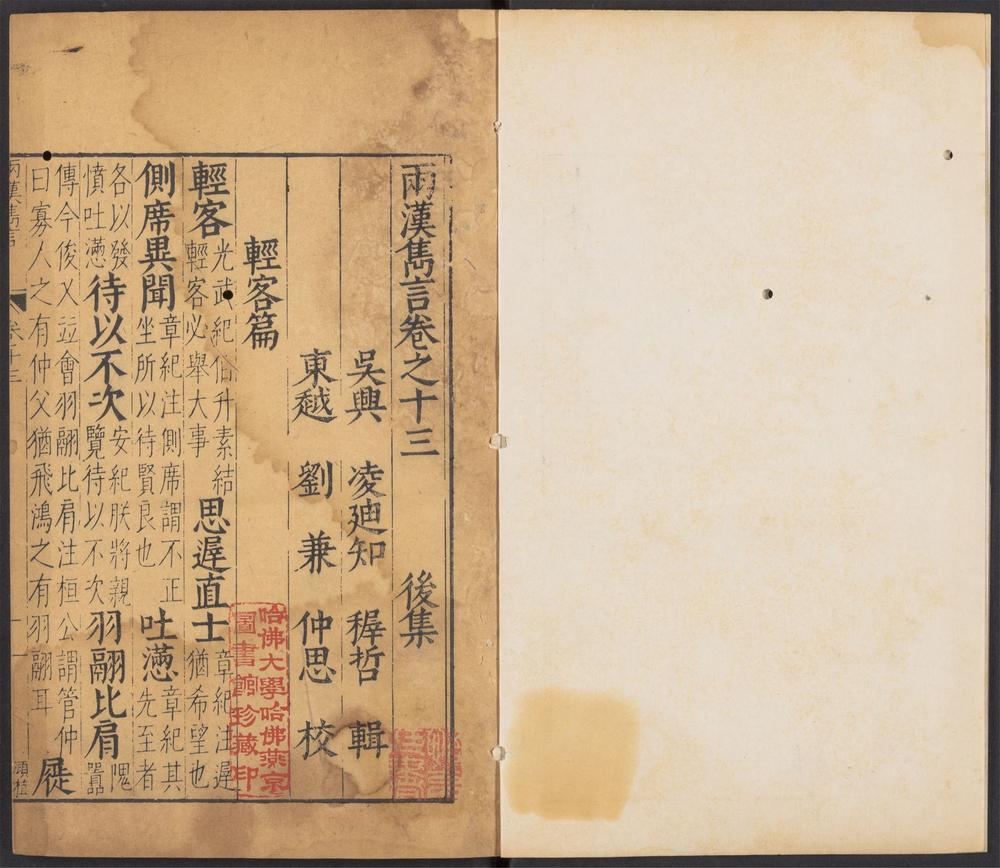 兩漢雋言卷之十三 後集
吳興 凌迪知 穉哲 輯
東越 劉兼 仲思 校
輕客篇
輕客 光武紀伯升素結輕客必舉大事 思遲直士 章紀注遲猶希望也
側席異聞 章紀注側席謂不正坐所以待賢良也 吐懣 章紀其先至者
各以發憤吐懣 待以不次 安紀朕將親覽待以不次 羽翮比肩 隗囂
傳今俊乂並會羽翮比肩注桓公謂管仲曰寡人之有仲父猶飛鴻之有羽翮耳 屣
兩漢雋言 卷十三 一
哈佛大學哈佛燕京圖書館珍藏印